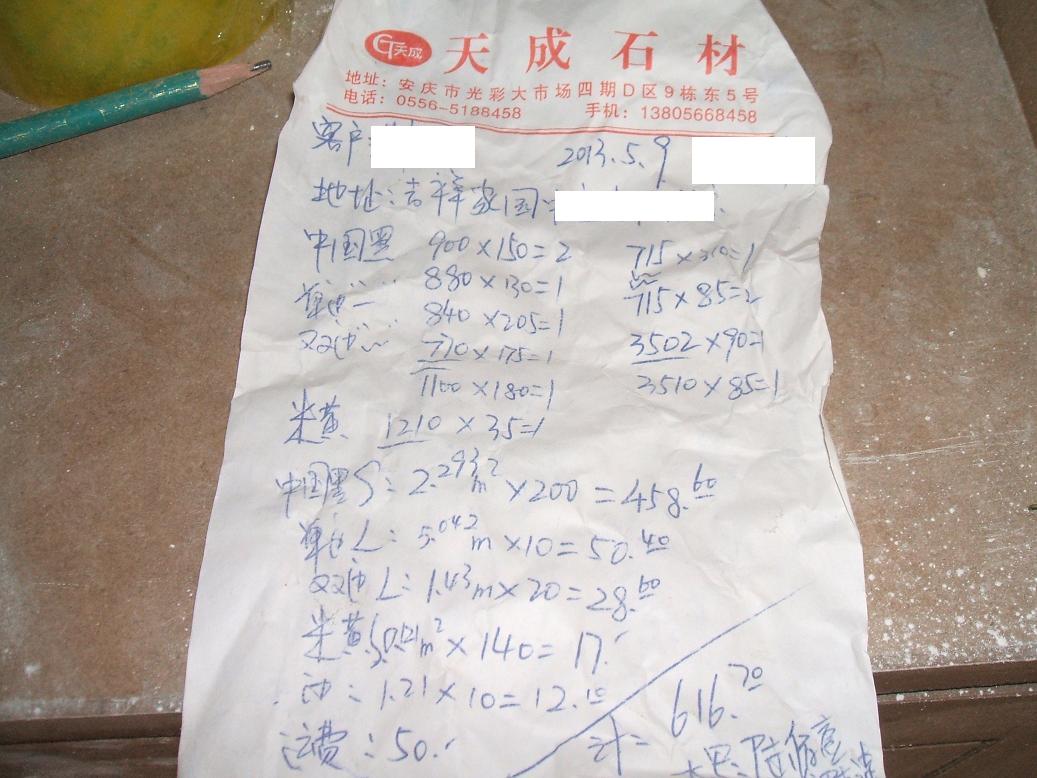 天成 天成石材
地址：安庆市光彩大市场四期D区9栋东5号
电话：0556-5188458 手机：13805668458
客户：
2013.5.9
地址：吉祥家园
中国黑 900×150=2 715×310=1
880×130=1 715×85=2
840×205=1
770×175=1 3502×90=1
1100×180=1 3510×85=1
米黄 1210×35=1
中国黑S：2.293m²×200=458.60
单边L：5.042m×10=50.40
双边L：1.43m×20=28.60
米黄S：0.121m²×140=17.
边：1.21×10=12.10
运费：50.
计= 616.70